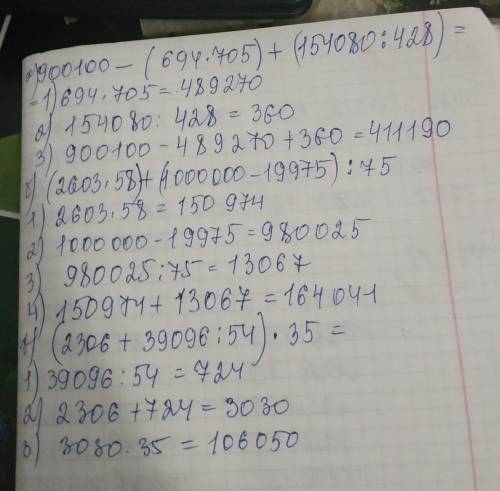 а) 900100 - (694 · 705) + (154080 : 428) =
= 1) 694 · 705 = 489270
2) 154080 : 428 = 360
3) 900100 - 489270 + 360 = 411190
б) (2603 · 58) + (1000000 - 19975) : 75
1) 2603 · 58 = 150974
2) 1000000 - 19975 = 980025
3) 980025 : 75 = 13067
4) 150974 + 13067 = 164041
в) (2306 + 39096 : 54) · 35 =
1) 39096 : 54 = 724
2) 2306 + 724 = 3030
3) 3030 · 35 = 106050